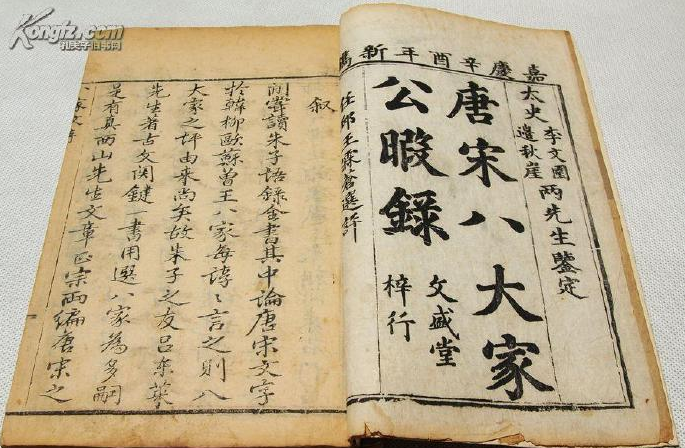 Kongfz.com
孔夫子旧书网
嘉慶辛酉年新鐫
太史李文園邊秋崖兩先生鑒定
唐宋八大家
公暇錄
文盛堂
梓行
任邱王霖蒼選評
叙
間嘗讀朱子語錄全書其中論唐宋文字
於韓柳歐蘇曾王八家每諄〻言之則八
大家之評由來尚矣故朱子之友呂東萊
先生著古文関鍵一書用選八家為多嗣
是有真西山先生文章正宗兩編唐宋之